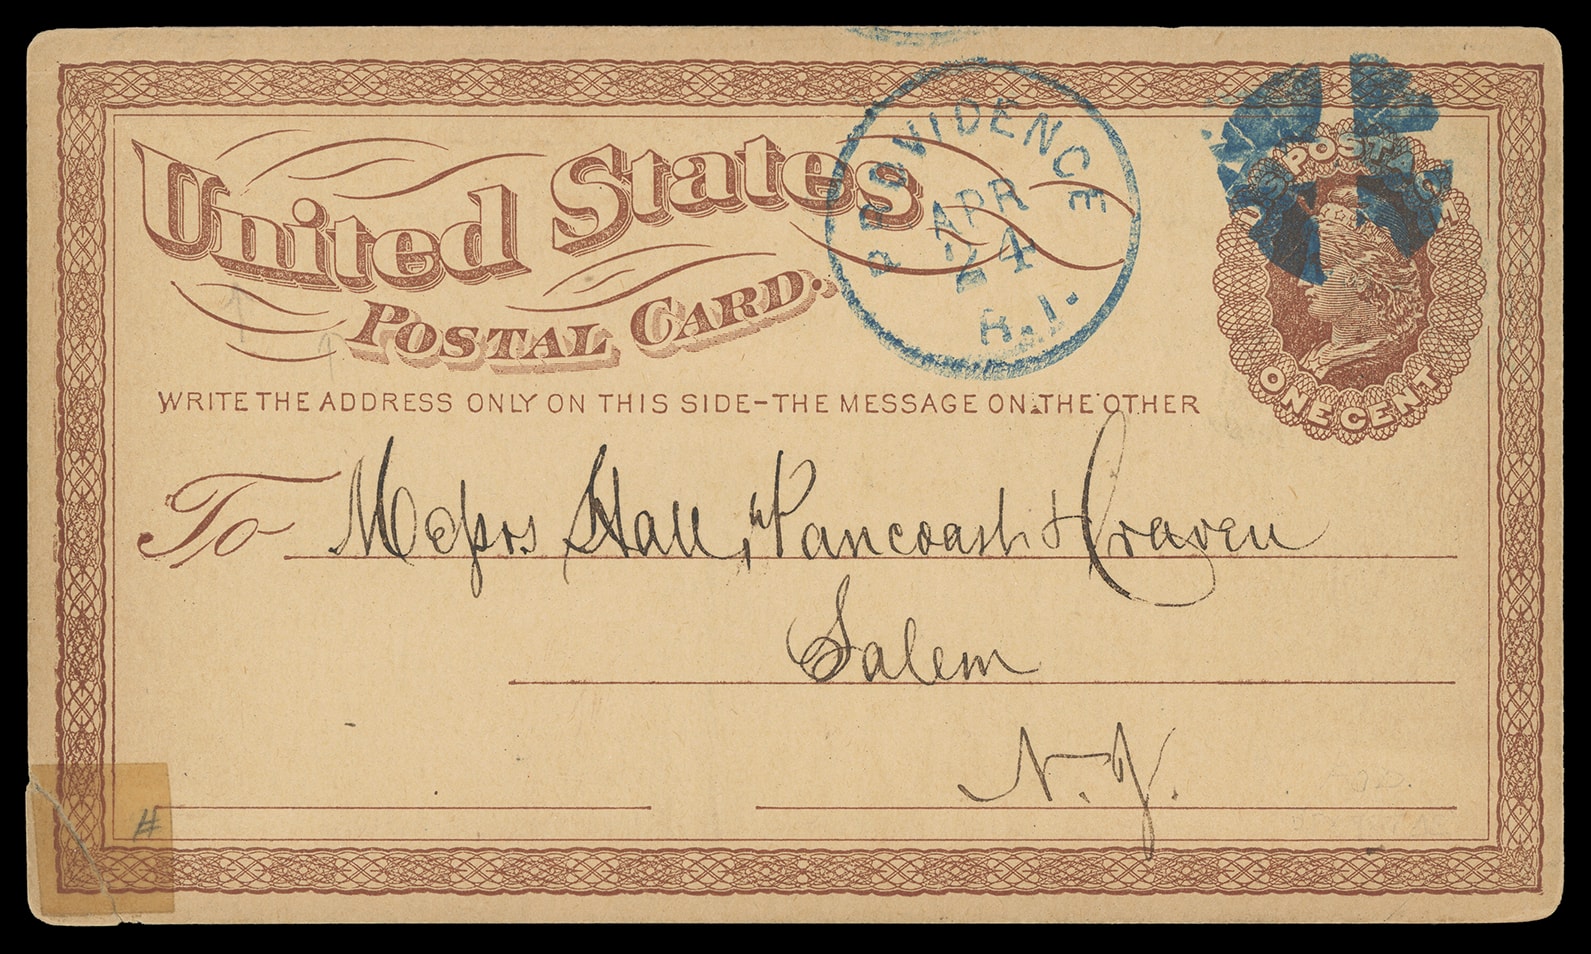 United States
POSTAL CARD.
PROVIDENCE
APR
24
R.I.
U.S. POSTAGE
ONE CENT
WRITE THE ADDRESS ONLY ON THIS SIDE-THE MESSAGE ON THE OTHER
To Messrs Hall, Pancoast & Craven
Salem
N.J.